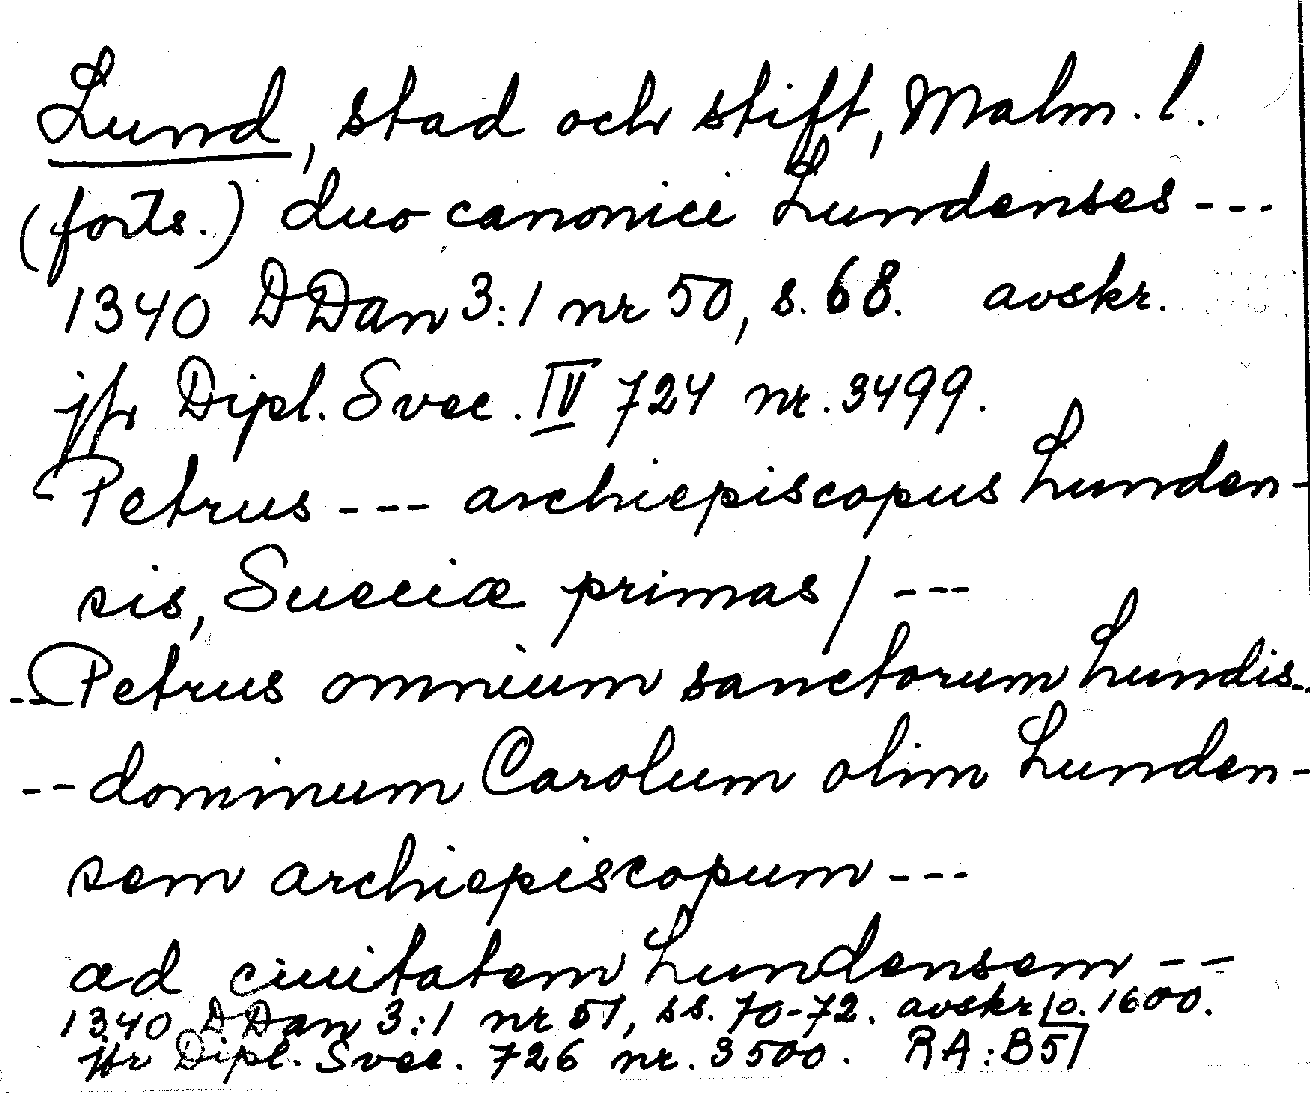 Lund, stad och stift, Malm. l.
(forts.) duo canonici Lundenses ---
1340 DDan 3:1 nr 50, s. 68. avskr.
jfr Dipl. Svec. IV 724 nr. 3499.
Petrus --- archiepiscopus Lunden-
sis, Sueciæ primas / ---
-- Petrus omnium sanctorum Lundis --
-- dominum Carolum olim Lunden-
sem archiepiscopum ---
ad ciuitatem Lundensem --
1340 DDan 3:1 nr 51, ss. 70-72. avskr. o. 1600.
jfr Dipl. Svec. 726 nr. 3500. RA: B57